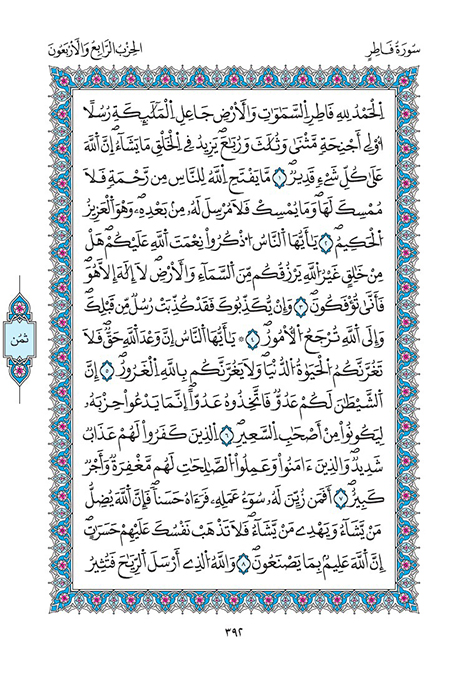 سُورَةُ فَاطِرٍ
الحِزْبُ الرَّابِعُ وَالْأَرْبَعُونَ
اِ۬لْحَمْدُ لِلهِ فَاطِرِ اِ۬لسَّمَٰوَٰتِ وَالْأَرْضِ جَاعِلِ اِ۬لْمَلَٰٓئِكَةِ رُسُلًا
ا۟وْلِے أَجْنِحَةٖ مَّثْنَىٰ وَثُلَٰثَ وَرُبَٰعَۖ يَزِيدُ فِے اِ۬لْخَلْقِ مَا يَشَآءُۖ إِنَّ اَ۬للَّهَ
عَلَىٰ كُلِّ شَےْءٖ قَدِيرٞۖ ١ مَّا يَفْتَحِ اِ۬للَّهُ لِلنَّاسِ مِن رَّحْمَةٖ فَلَا
مُمْسِكَ لَهَاۖ وَمَا يُمْسِكْ فَلَا مُرْسِلَ لَهُۥ مِنۢ بَعْدِهِۦۖ وَهُوَ اَ۬لْعَزِيزُ
اُ۬لْحَكِيمُۖ ٢ يَٰٓأَيُّهَا اَ۬لنَّاسُ اُ۟ذْكُرُوا۟ نِعْمَتَ اَ۬للَّهِ عَلَيْكُمْۖ هَلْ
مِنْ خَٰلِقٍ غَيْرُ اُ۬للَّهِ يَرْزُقُكُم مِّنَ اَ۬لسَّمَآءِ وَالْأَرْضِۖ لَآ إِلَٰهَ إِلَّا هُوَۖ
فَأَنَّىٰ تُؤْفَكُونَۖ ٣ وَإِنْ يُّكَذِّبُوكَ فَقَدْ كُذِّبَتْ رُسُلٞ مِّن قَبْلِكَۖ
وَإِلَى اَ۬للَّهِ تُرْجَعُ اُ۬لْأُمُورُۖ ٤ ۞ يَٰٓأَيُّهَا اَ۬لنَّاسُ إِنَّ وَعْدَ اَ۬للَّهِ حَقّٞۖ فَلَا
تَغُرَّنَّكُمُ اُ۬لْحَيَوٰةُ اُ۬لدُّنْيَاۖ وَلَا يَغُرَّنَّكُم بِاللَّهِ اِ۬لْغَرُورُۖ ٥ إِنَّ
اَ۬لشَّيْطَٰنَ لَكُمْ عَدُوّٞ فَاتَّخِذُوهُ عَدُوًّاۖ إِنَّمَا يَدْعُوا۟ حِزْبَهُۥ
لِيَكُونُوا۟ مِنْ أَصْحَٰبِ اِ۬لسَّعِيرِۖ ٦ اِ۬لذِينَ كَفَرُوا۟ لَهُمْ عَذَابٞ
شَدِيدٞۖ وَالذِينَ ءَامَنُوا۟ وَعَمِلُوا۟ اُ۬لصَّٰلِحَٰتِ لَهُم مَّغْفِرَةٞ وَأَجْرٞ
كَبِيرٌۖ ٧ أَفَمَن زُيِّنَ لَهُۥ سُوٓءُ عَمَلِهِۦ فَرَءَاهُ حَسَنٗاۖ فَإِنَّ اَ۬للَّهَ يُضِلُّ
مَنْ يَّشَآءُ وَيَهْدِے مَنْ يَّشَآءُۖ فَلَا تَذْهَبْ نَفْسُكَ عَلَيْهِمْ حَسَرَٰتٍۖ
إِنَّ اَ۬للَّهَ عَلِيمُۢ بِمَا يَصْنَعُونَۖ ٨ وَاللَّهُ اُ۬لذِےٓ أَرْسَلَ اَ۬لرِّيَٰحَ فَتُثِيرُ
ثُمُن
٣٩٢